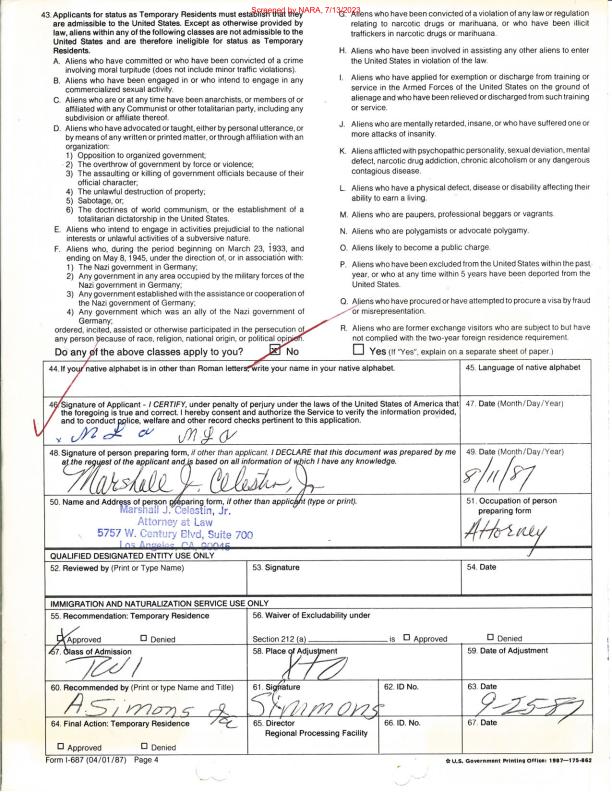 Screened by NARA, 7/13/2023
43. Applicants for status as Temporary Residents must establish that they
are admissible to the United States. Except as otherwise provided by
law, aliens within any of the following classes are not admissible to the
United States and are therefore ineligible for status as Temporary
Residents.
A. Aliens who have committed or who have been convicted of a crime
involving moral turpitude (does not include minor traffic violations).
B. Aliens who have been engaged in or who intend to engage in any
commercialized sexual activity.
C. Aliens who are or at any time have been anarchists, or members of or
affiliated with any Communist or other totalitarian party, including any
subdivision or affiliate thereof.
D. Aliens who have advocated or taught, either by personal utterance, or
by means of any written or printed matter, or through affiliation with an
organization:
1) Opposition to organized government;
2) The overthrow of government by force or violence;
3) The assaulting or killing of government officials because of their
official character;
4) The unlawful destruction of property;
5) Sabotage, or;
6) The doctrines of world communism, or the establishment of a
totalitarian dictatorship in the United States.
E. Aliens who intend to engage in activities prejudicial to the national
interests or unlawful activities of a subversive nature.
F. Aliens who, during the period beginning on March 23, 1933, and
ending on May 8, 1945, under the direction of, or in association with:
1) The Nazi government in Germany;
2) Any government in any area occupied by the military forces of the
Nazi government in Germany;
3) Any government established with the assistance or cooperation of
the Nazi government of Germany;
4) Any government which was an ally of the Nazi government of
Germany;
ordered, incited, assisted or otherwise participated in the persecution of
any person because of race, religion, national origin, or political opinion.
G. Aliens who have been convicted of a violation of any law or regulation
relating to narcotic drugs or marihuana, or who have been illicit
traffickers in narcotic drugs or marihuana.
H. Aliens who have been involved in assisting any other aliens to enter
the United States in violation of the law.
I. Aliens who have applied for exemption or discharge from training or
service in the Armed Forces of the United States on the ground of
alienage and who have been relieved or discharged from such training
or service.
J. Aliens who are mentally retarded, insane, or who have suffered one or
more attacks of insanity.
K. Aliens afflicted with psychopathic personality, sexual deviation, mental
defect, narcotic drug addiction, chronic alcoholism or any dangerous
contagious disease.
L. Aliens who have a physical defect, disease or disability affecting their
ability to earn a living.
M. Aliens who are paupers, professional beggars or vagrants.
N. Aliens who are polygamists or advocate polygamy.
O. Aliens likely to become a public charge.
P. Aliens who have been excluded from the United States within the past
year, or who at any time within 5 years have been deported from the
United States.
Q. Aliens who have procured or have attempted to procure a visa by fraud
or misrepresentation.
R. Aliens who are former exchange visitors who are subject to but have
not complied with the two-year foreign residence requirement.
Do any of the above classes apply to you? X No Yes (If "Yes", explain on a separate sheet of paper.)
44. If your native alphabet is in other than Roman letters, write your name in your native alphabet.
45. Language of native alphabet
46. Signature of Applicant - I CERTIFY, under penalty of perjury under the laws of the United States of America that
the foregoing is true and correct. I hereby consent and authorize the Service to verify the information provided,
and to conduct police, welfare and other record checks pertinent to this application.
47. Date (Month/Day/Year)
48. Signature of person preparing form, if other than applicant. I DECLARE that this document was prepared by me
at the request of the applicant and is based on all information of which I have any knowledge.
Marshall J. Celestin, Jr
49. Date (Month/Day/Year)
8/11/87
50. Name and Address of person preparing form, if other than applicant (type or print).
Marshall J. Celestin, Jr.
Attorney at Law
5757 W. Century Blvd, Suite 700
Los Angeles, CA 90045
51. Occupation of person
preparing form
Attorney
QUALIFIED DESIGNATED ENTITY USE ONLY
52. Reviewed by (Print or Type Name)
53. Signature
54. Date
IMMIGRATION AND NATURALIZATION SERVICE USE ONLY
55. Recommendation: Temporary Residence
Approved Denied
56. Waiver of Excludability under
Section 212 (a) is Approved Denied
57. Class of Admission
58. Place of Adjustment
59. Date of Adjustment
60. Recommended by (Print or type Name and Title)
A. Simons
61. Signature
Simmons
62. ID No.
63. Date
9-25-87
64. Final Action: Temporary Residence
Approved Denied
65. Director
Regional Processing Facility
66. ID No.
67. Date
Form I-687 (04/01/87) Page 4
✩ U.S. Government Printing Office: 1987-175-862